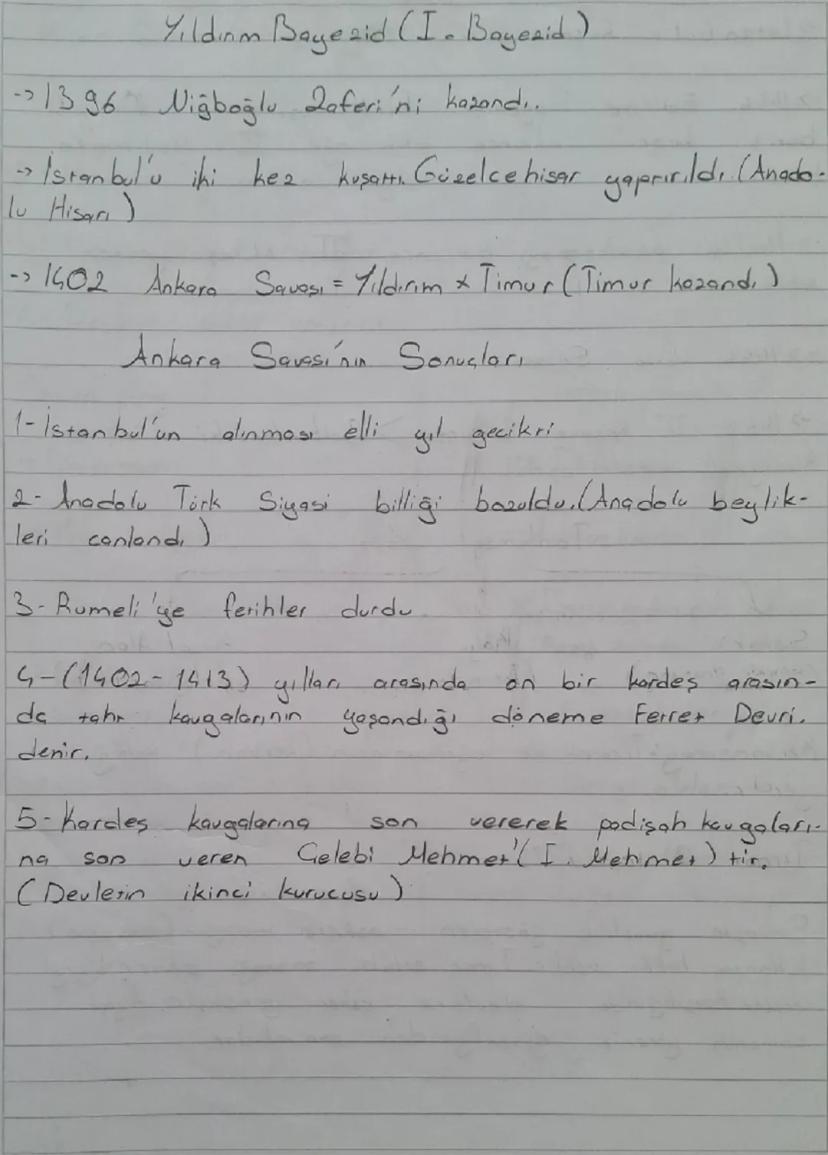 Yıldırım Bayezid (I. Bayezid)
->1396 Niğboğlu Zaferi'ni kazandı.
-> İstanbul'u iki kez kuşattı. Güzelcehisar yaptırıldı (Anado-
lu Hisarı)
-> 1402 Ankara Savaşı = Yıldırım x Timur (Timur kazandı)
Ankara Savaşı'nın Sonuçları
1- İstanbul'un alınması elli yıl gecikti
2- Anadolu Türk Siyasi billiği bozuldu. (Anadolu beylik-
leri canlandı)
3- Rumeli'ye fetihler durdu
4- (1402-1413) yılları arasında on bir kardeş arasın-
da taht kavgalarının yaşandığı döneme Fetret Devri.
denir.
5- Kardeş kavgalarına son vererek padişah kavgaları-
na son veren Çelebi Mehmet' (I. Mehmet) tir.
(Devletin ikinci kurucusu)